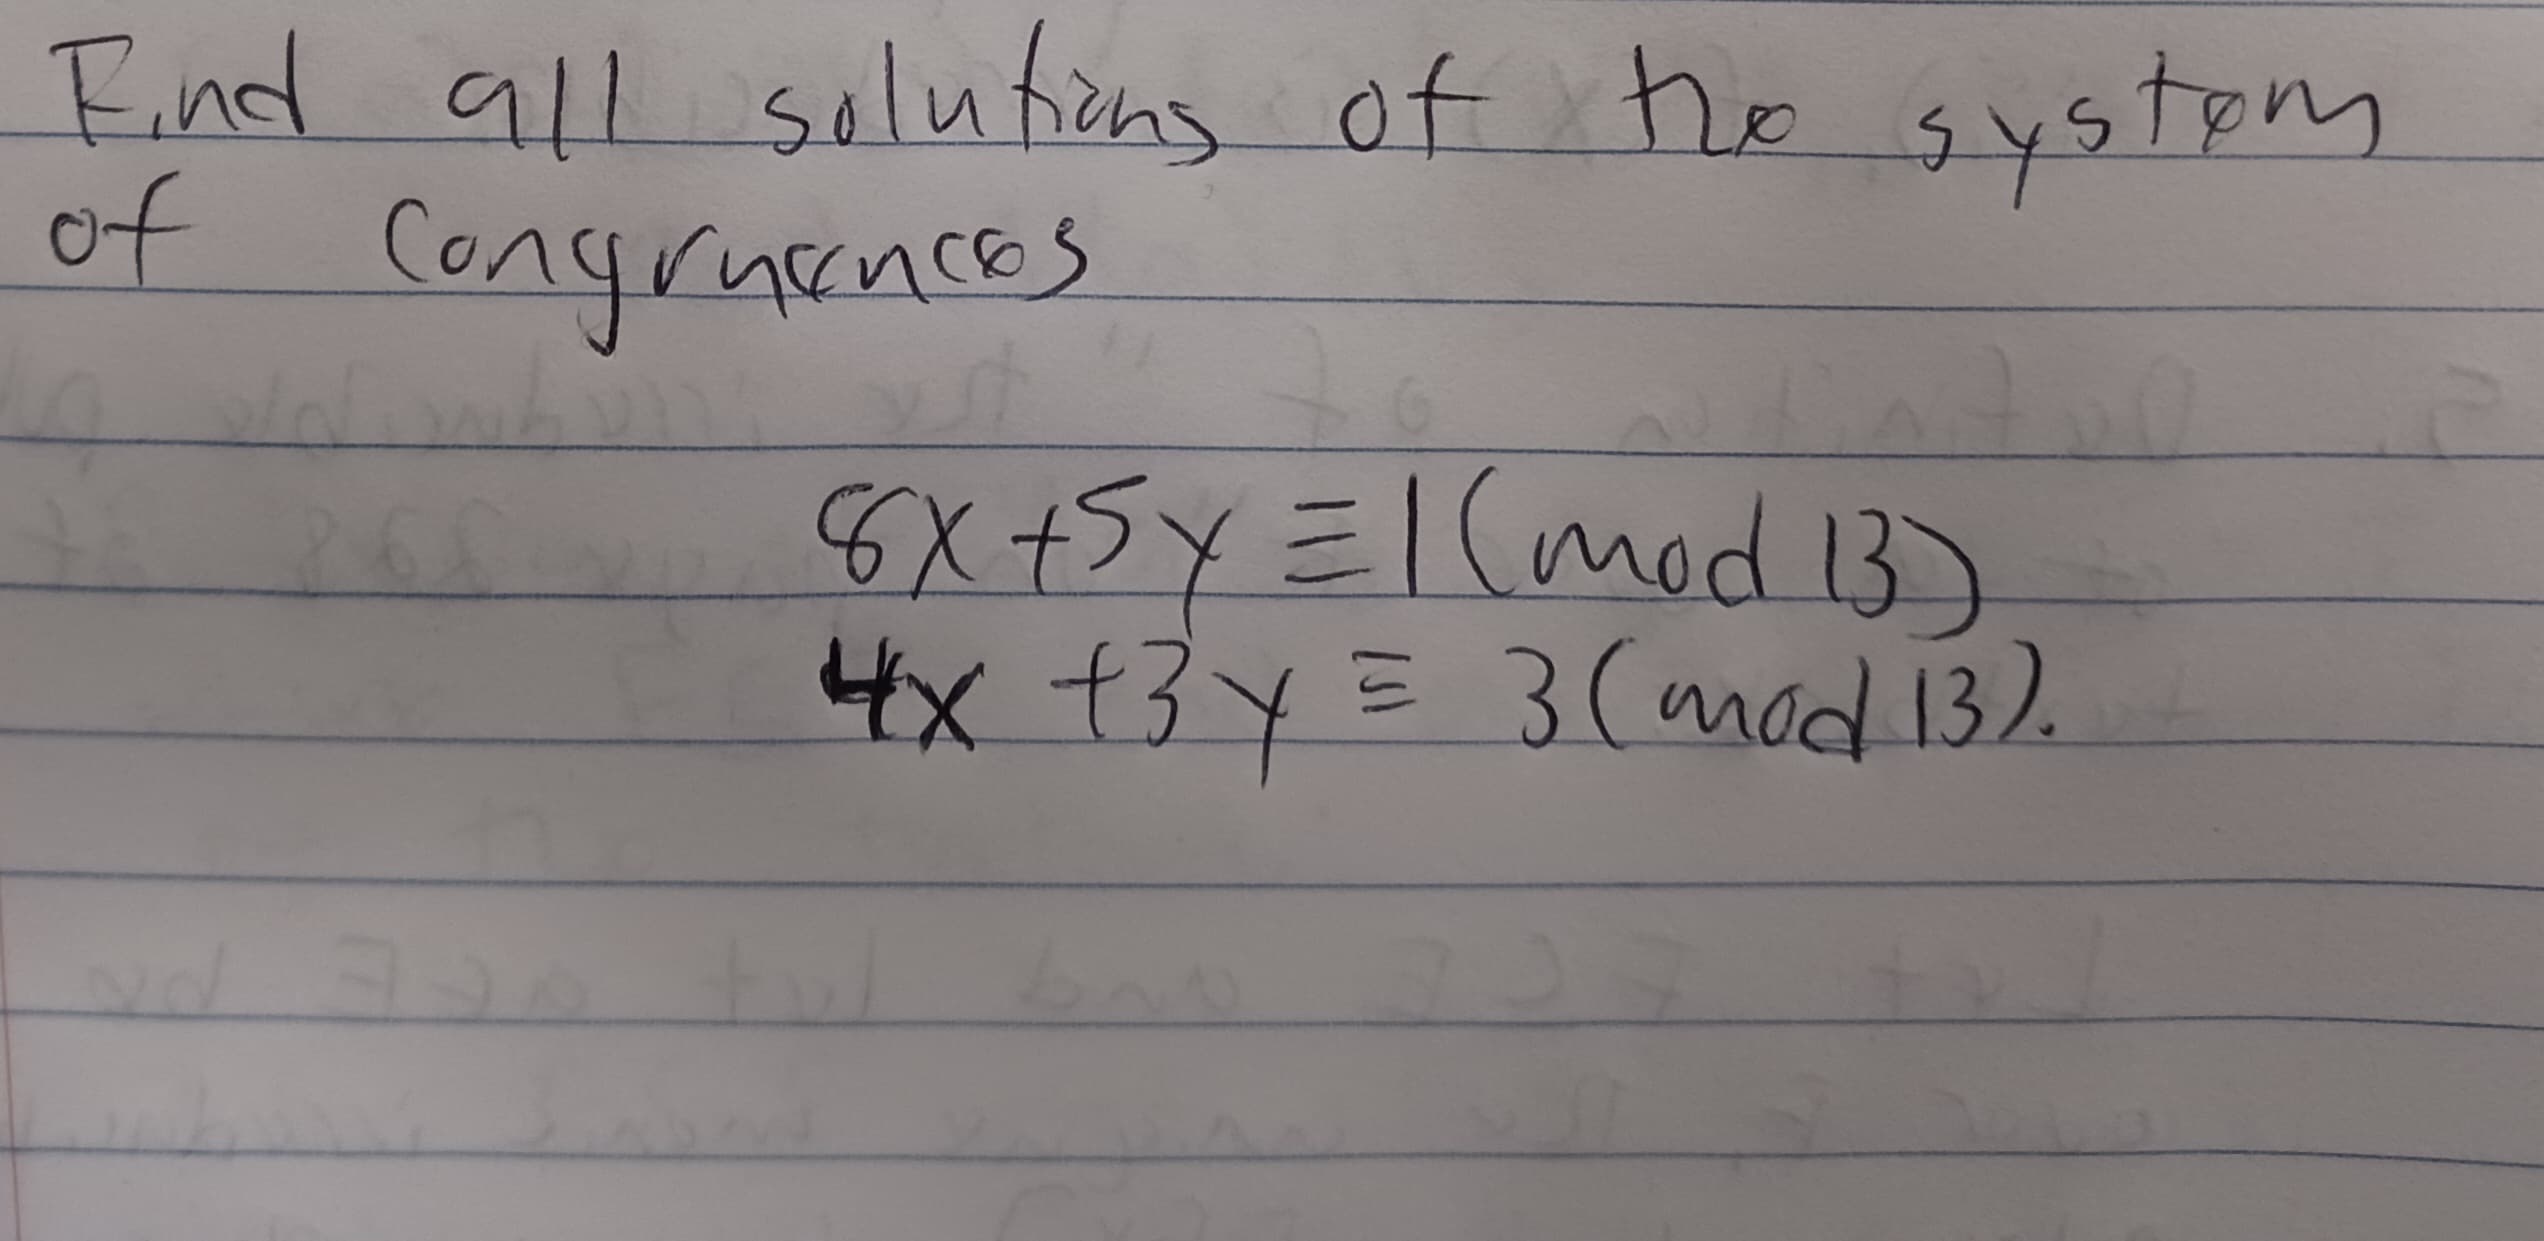 Find all solutions of the system
of congruences
8x + 5y ≡ 1 (mod 13)
4x + 3y ≡ 3 (mod 13).